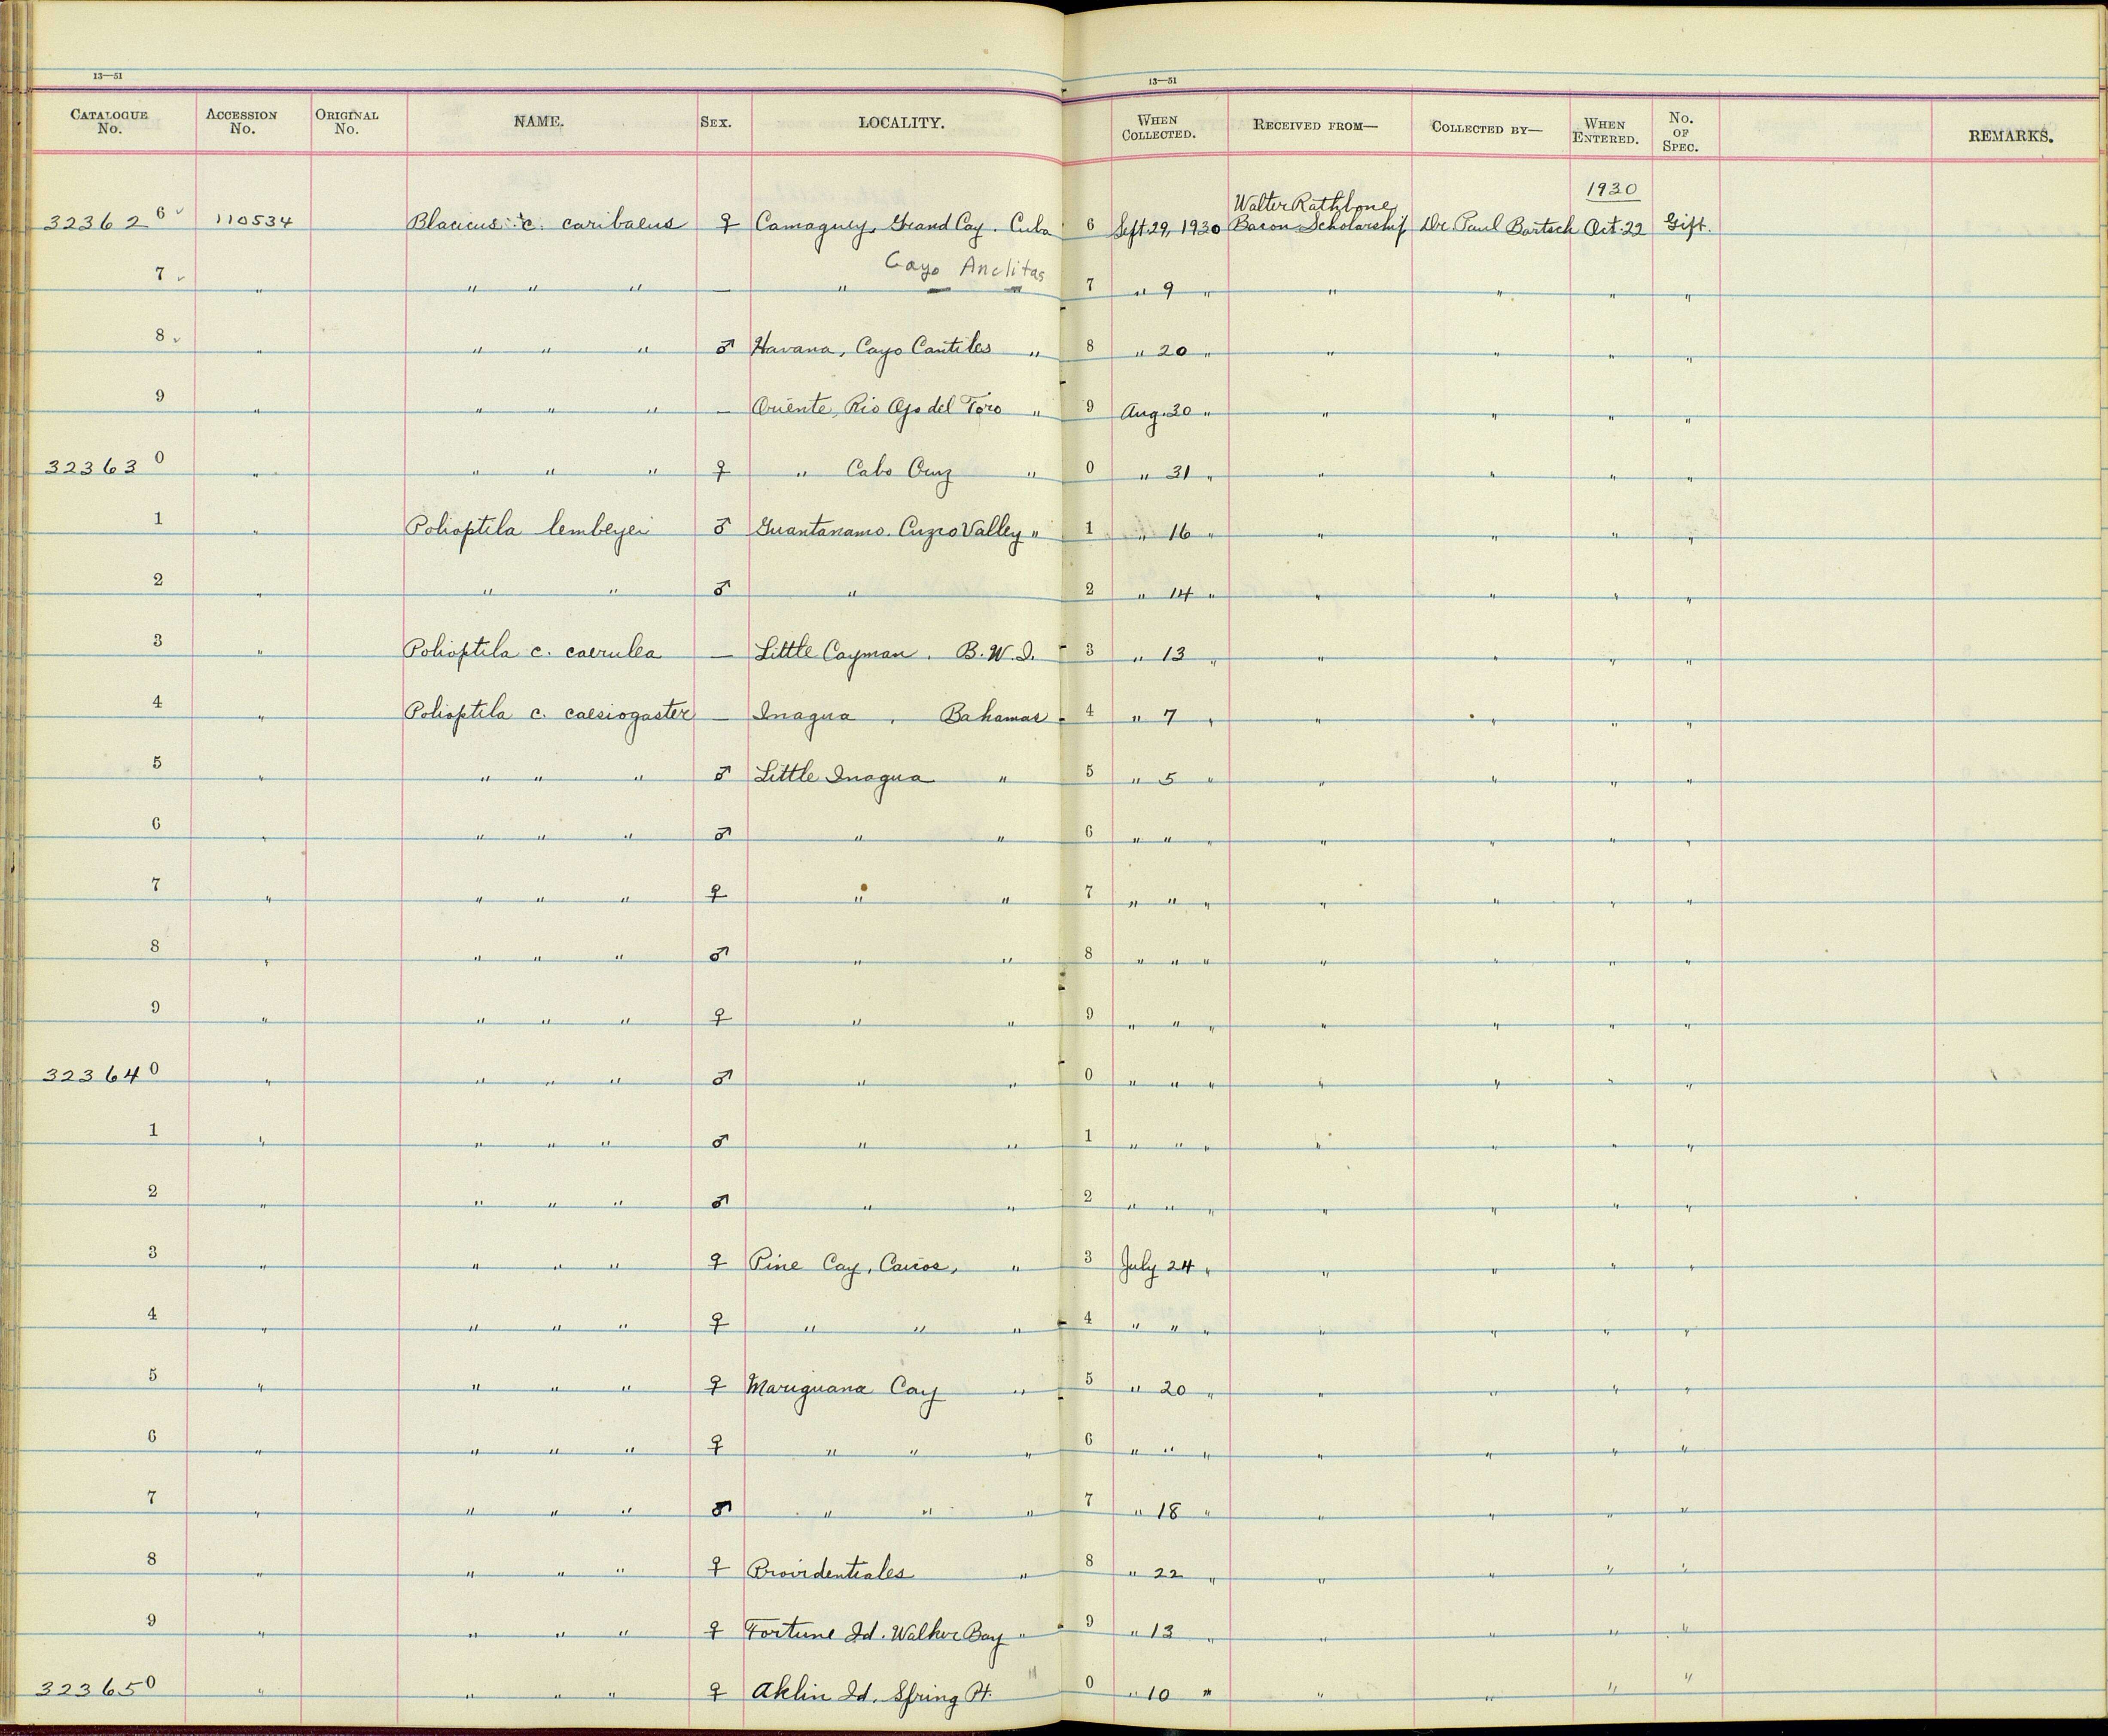 13—51 13—51
CATALOGUE No. ACCESSION No. ORIGINAL No. NAME. SEX. LOCALITY. WHEN COLLECTED. RECEIVED FROM— COLLECTED BY— WHEN ENTERED. No. OF SPEC. REMARKS.
1930
Walter Rathbone
32362 6 110534 Blacicus c. caribaeus ♀ Camaguey, Grand Cay. Cuba 6 Sept. 29, 1930 Bacon Scholarship Dr. Paul Bartsch Oct. 22 Gift.
Cayo Anclitas
7 " " " " — " 7 " 9 " " " " "
8 " " " " ♂ Havana, Cayo Cantiles " 8 " 20 " " " " "
9 " " " " — Oriente, Rio Ojo del Toro " 9 Aug. 30 " " " " "
32363 0 " " " " ♀ " Cabo Cruz " 0 " 31 " " " " "
1 " Polioptila lembeyei ♂ Guantanamo. Cuzco Valley " 1 " 16 " " " " "
2 " " " ♂ " 2 " 14 " " " " "
3 " Polioptila c. caerulea — Little Cayman, B.W.I. 3 " 13 " " " " "
4 " Polioptila c. caesiogaster — Inagua, Bahamas 4 " 7 " " " " "
5 " " " " ♂ Little Inagua " 5 " 5 " " " " "
6 " " " " ♂ " " 6 " " " " " " "
7 " " " " ♀ " " 7 " " " " " " "
8 " " " " ♂ " " 8 " " " " " " "
9 " " " " ♀ " " 9 " " " " " " "
32364 0 " " " " ♂ " " 0 " " " " " " "
1 " " " " ♂ " " 1 " " " " " " "
2 " " " " ♂ " " 2 " " " " " " "
3 " " " " ♀ Pine Cay, Caicos, " 3 July 24 " " " " "
4 " " " " ♀ " " " 4 " " " " " " "
5 " " " " ♀ Mariguana Cay " 5 " 20 " " " " "
6 " " " " ♀ " " " 6 " " " " " " "
7 " " " " ♂ " " " 7 " 18 " " " " "
8 " " " " ♀ Providentiales " 8 " 22 " " " " "
9 " " " " ♀ Fortune Id. Walker Bay " 9 " 13 " " " " "
32365 0 " " " " ♀ Aklin Id. Spring Pt. " 0 " 10 " " " " "